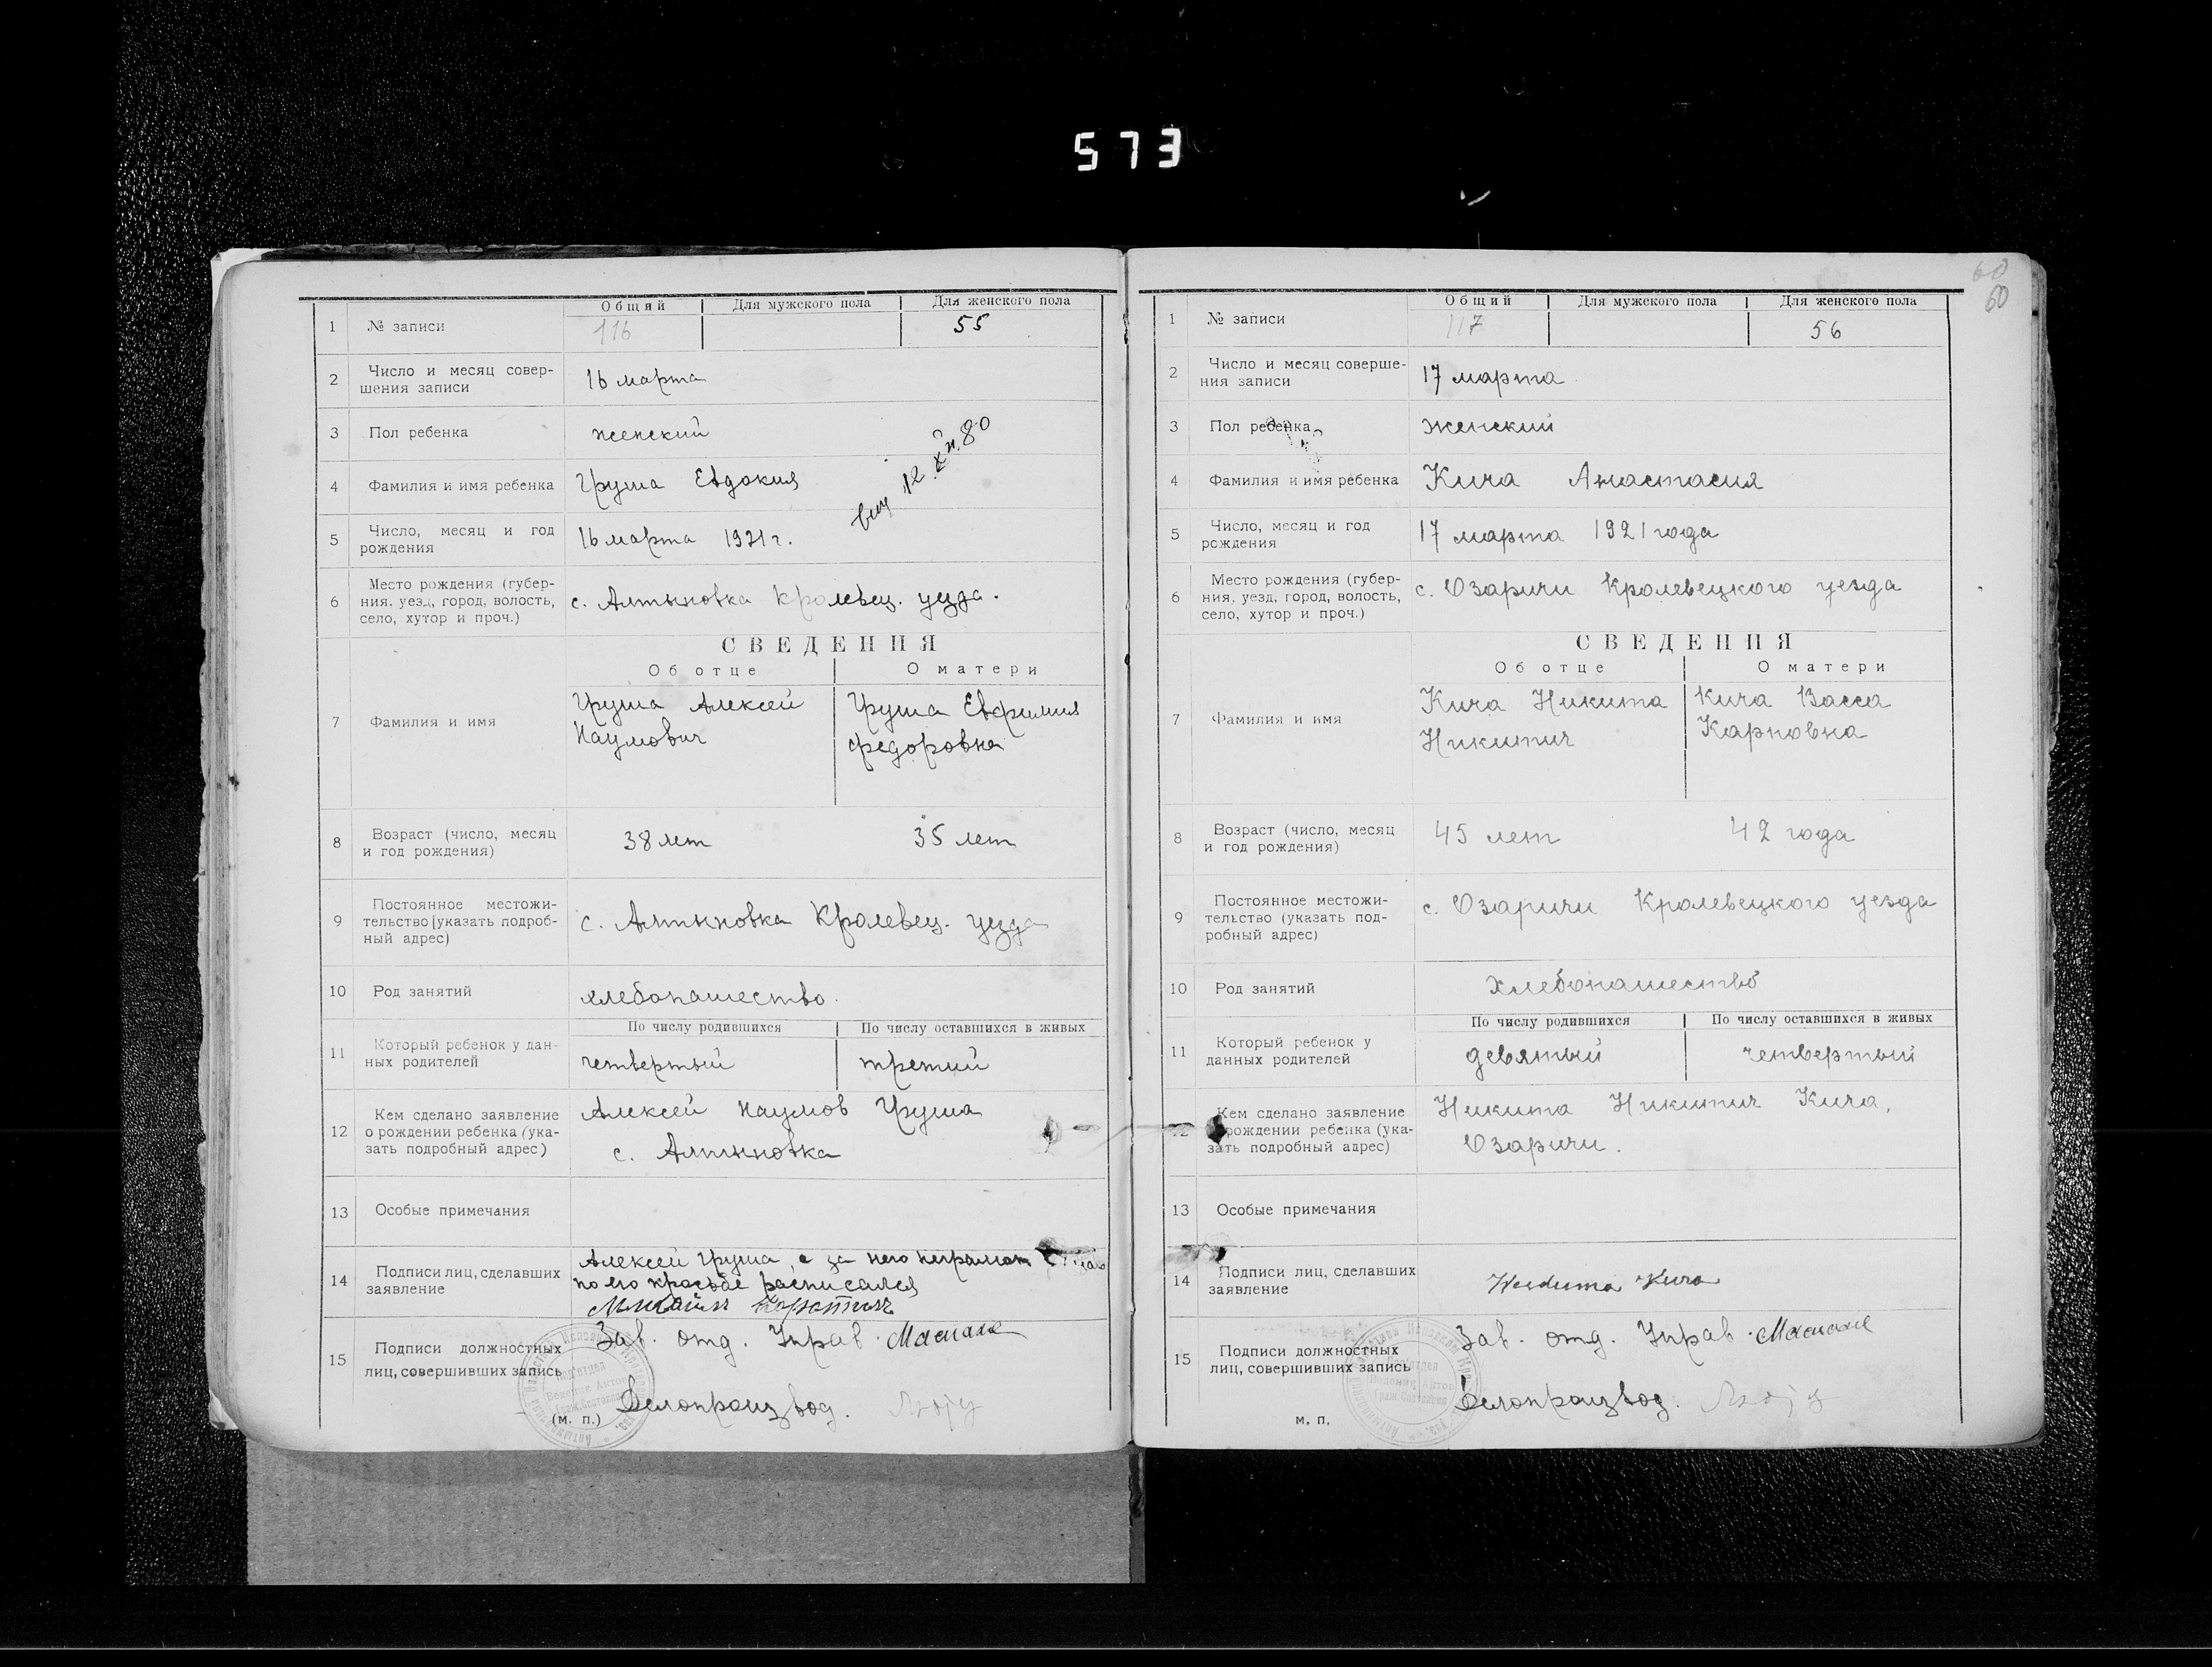 573
60
60
Общий
Для мужского пола
Для женского пола
1
№ записи
116
55
2
Число и месяц совер-
шения записи
16 марта
3
Пол ребенка
женский
12. XII. 80
4
Фамилия и имя ребенка
Груша Евдокия
5
Число, месяц и год
рождения
16 марта 1921 г.
6
Место рождения (губер-
ния, уезд, город, волость,
село, хутор и проч.)
с. Алтыновка Кролевец. уезда.
СВЕДЕНИЯ
Об отце
О матери
7
Фамилия и имя
Груша Алексей
Наумович
Груша Евфимия
Федоровна
8
Возраст (число, месяц
и год рождения)
38 лет
35 лет
9
Постоянное местожи-
тельство (указать подроб-
ный адрес)
с. Алтыновка Кролевец. уезда
10
Род занятий
хлебопашество.
По числу родившихся
По числу оставшихся в живых
11
Который ребенок у дан-
ных родителей
четвертый
третий
12
Кем сделано заявление
о рождении ребенка (ука-
зать подробный адрес)
Алексей Наумов Груша
с. Алтыновка
13
Особые примечания
14
Подписи лиц, сделавших
заявление
Алексей Груша, а за него неграмот
по его просьбе расписался
15
Подписи должностных
лиц, совершивших запись
Зав. отд. Управ.
Делопроизвод.
(м. п.)
Общий
Для мужского пола
Для женского пола
1
№ записи
117
56
2
Число и месяц соверше-
ния записи
17 марта
3
Пол ребенка
женский
4
Фамилия и имя ребенка
Кича Анастасия
5
Число, месяц и год
рождения
17 марта 1921 года
6
Место рождения (губер-
ния, уезд, город, волость,
село, хутор и проч.)
с. Озаричи Кролевецкого уезда
СВЕДЕНИЯ
Об отце
О матери
7
Фамилия и имя
Кича Никита
Никитич
Кича Васса
Карповна
8
Возраст (число, месяц
и год рождения)
45 лет
42 года
9
Постоянное местожи-
тельство (указать под-
робный адрес)
с. Озаричи Кролевецкого уезда
10
Род занятий
хлебопашество
По числу родившихся
По числу оставшихся в живых
11
Который ребенок у
данных родителей
девятый
четвертый
12
Кем сделано заявление
о рождении ребенка (ука-
зать подробный адрес)
Никита Никитич Кича,
Озаричи.
13
Особые примечания
14
Подписи лиц, сделавших
заявление
Никита Кича
15
Подписи должностных
лиц, совершивших запись
Зав. отд. Управ.
Делопроизвод.
м. п.